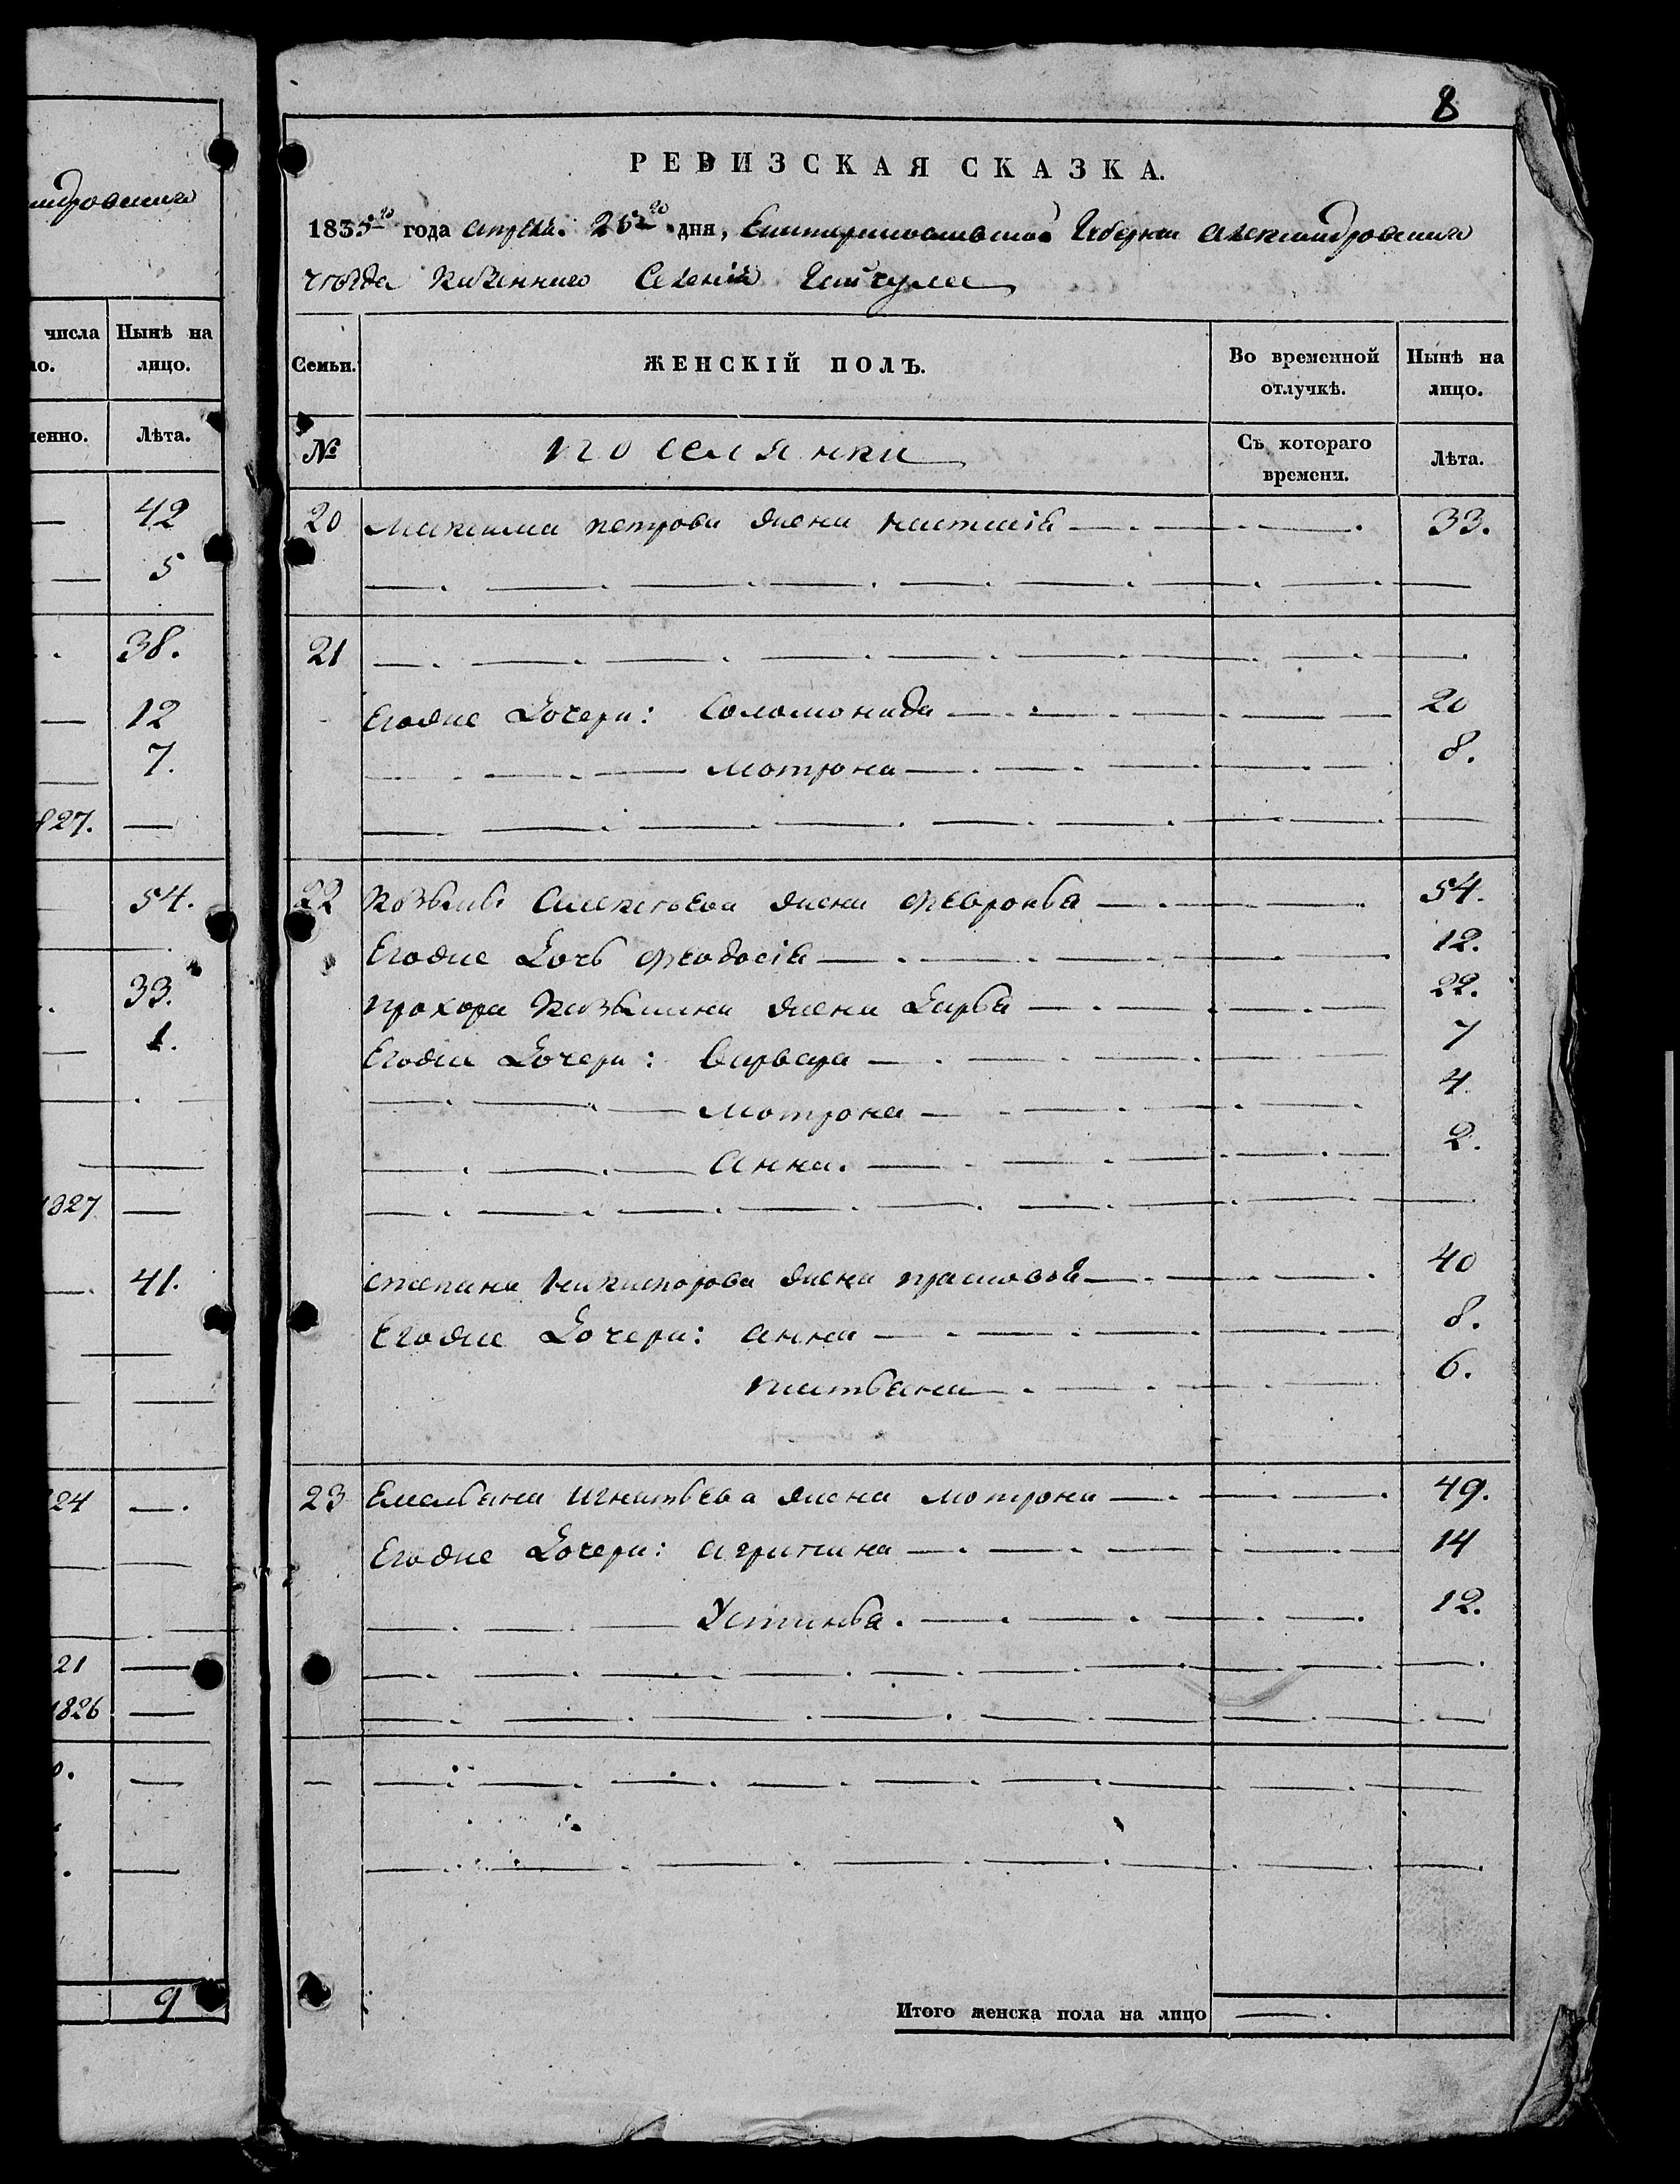 мдровскаго
числа Нынѣ на
но. лицо.
менно. Лѣта.
— 42
— 5
38.
— 12
— 7.
827. —
54.
33.
— 1.
1827 —
41.
24 —.
21 —
1826 —
9
8
РЕВИЗСКАЯ СКАЗКА.
1835го года апрѣля 25го дня, Екатеринославской Губернии Александровскаго
уѣзда казеннаго Селенія Гайчула
Семьи. ЖЕНСКІЙ ПОЛЪ. Во временной отлучкѣ. Нынѣ на лицо.
№ поселянки Съ котораго времени. Лѣта.
20 Максима Петрова жена Настасія — 33.
21 —
Егоже Дочери: Соломонида — 20
Мотрона — 8.
22 Козьмы Алексѣева жена Февронья — 54.
Егоже Дочь Феодосія — 12.
Прохора Козьмина жена Дарья — 22.
Егоже Дочери: Варвара — 7
Мотрона — 4
Анна. — 2.
Степана Никифорова жена Прасковья — 40
Егоже Дочери: Анна — 8.
Татьяна — 6.
23 Емельяна Игнатьева жена Мотрона — 49.
Егоже Дочери: Агрипина — 14
Устинья. — 12.
Итого женска пола на лицо —.